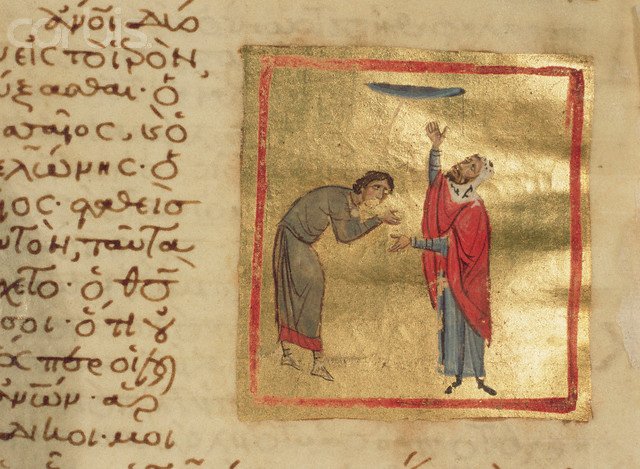 corbis
ἄνοι δύο
εἰς τὸ ἱερὸν,
ύξασθαι· ὁ
σαῖος, κὶ ὁ
ελώνης· ὁ
ῖος· σταθεὶσ
υτὸν, ταῦτα
χετο· ὁ θς
σοι· ὅτι οὐ
ὥσπερ οἱ
ἀνων· ἅρ
δικοι· μοι